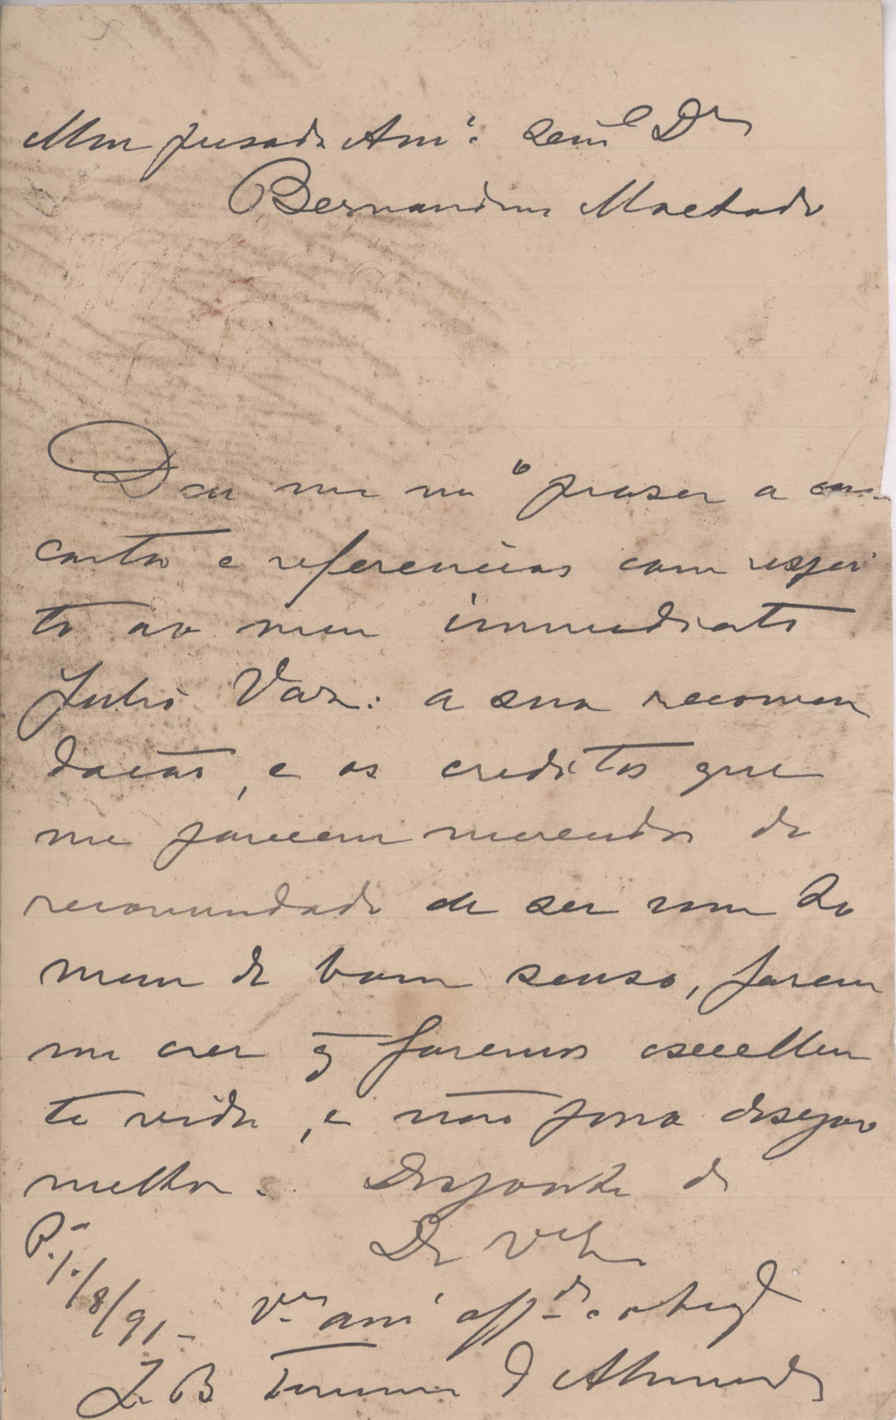 Meu presado Amº. Senr Dr
Bernardino Machado
Deu me mº praser a sua
carta e referencias com respei
to ao meu immediato
Julio Vaz: a sua recomen
dacão, e os creditos que
me parecem merecidos do
recomendado de ser um ho
mem de bom senso, fazem
me crer q̃ faremos excellen
te vida, e não posso desejar
melhor. Disponha de
De V Ex
P. 1./8/91-
amº affdo. e obrigdo
J. B. d'Almeida